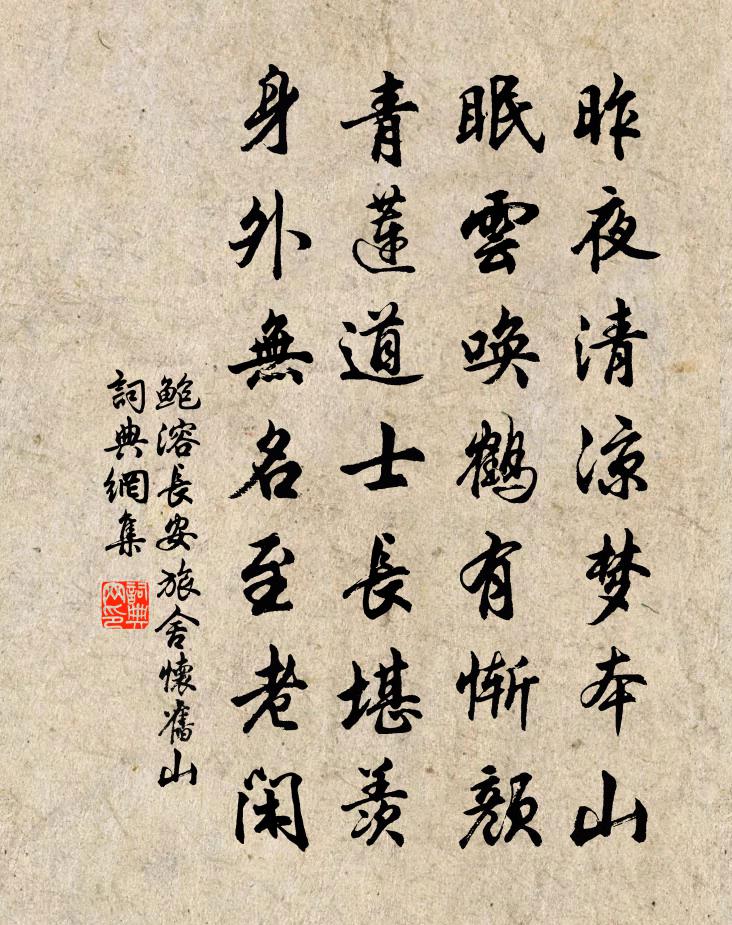 昨夜清凉梦本山
眠雲唤鶴有慚顏
青蓮道士長堪羨
身外無名至老閑
鮑溶長安旅舍懷舊山
詞典網集
詞典网印